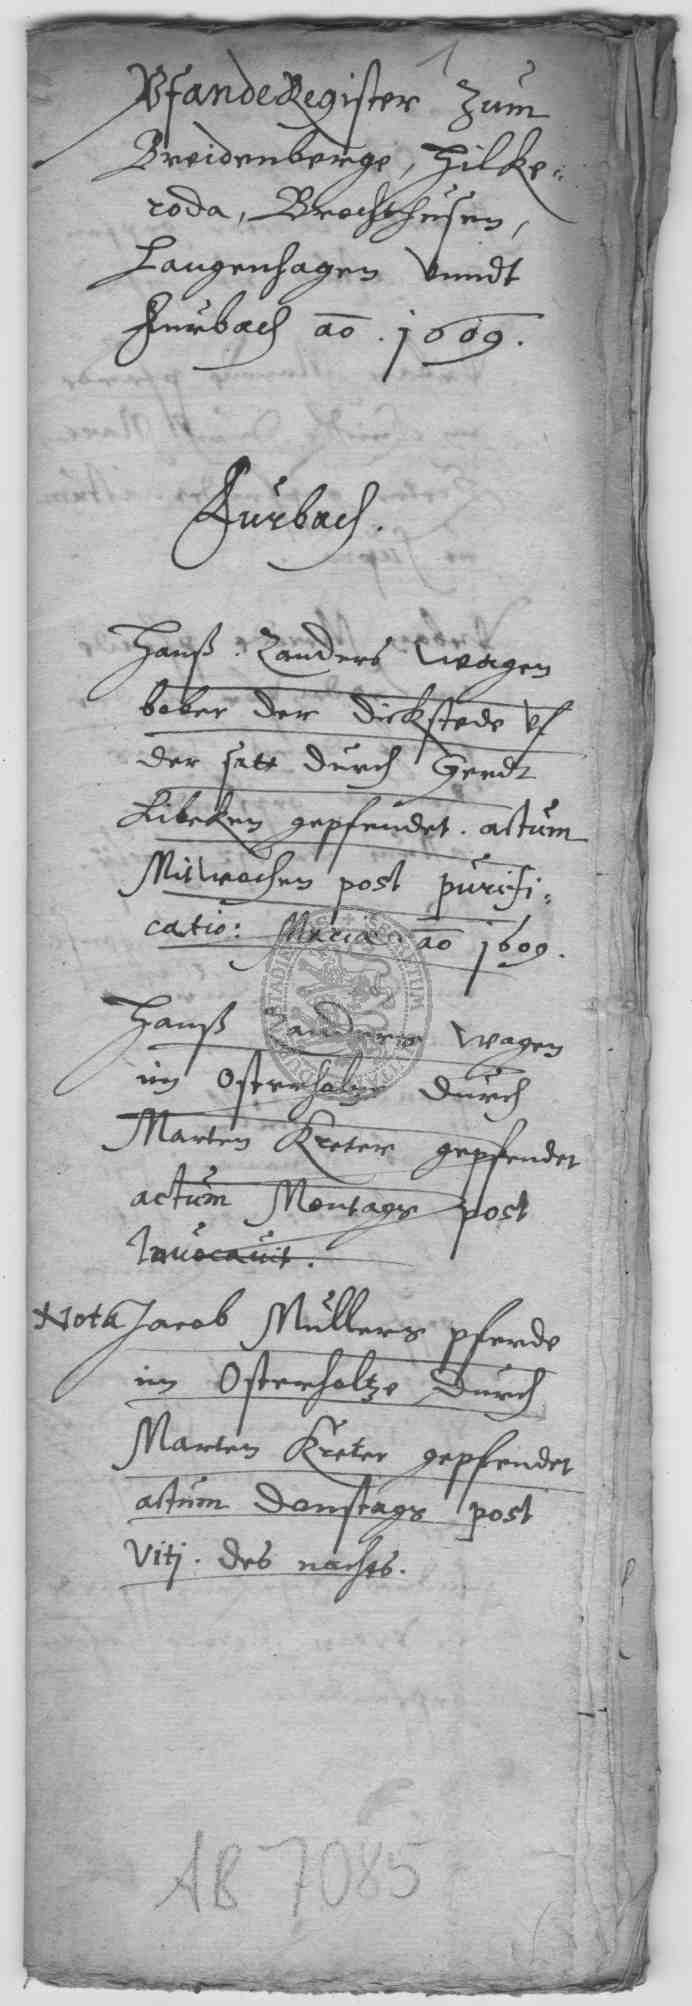 Pfande Register zum
Breidenberge, Hilke=
roda, Brochthusen,
Langenhagen vnndt
Furbach ao. 1609.
Furbach.
Hanß Zanders wagen
bober der dickstede vf
der satt durch Gerdt
Libeken gepfendet. actum
Mitwochen post purifi=
catio: Mariæ ao 1609.
Hanß Zanders wagen
im Osterholtze durch
Marten Kreter gepfendet
actum Montags post
Invocavit.
Nota Jacob Müllers pferde
im Osterholtze durch
Marten Kreter gepfendet
actum donstags post
Viti. des nachts.
AB 7085